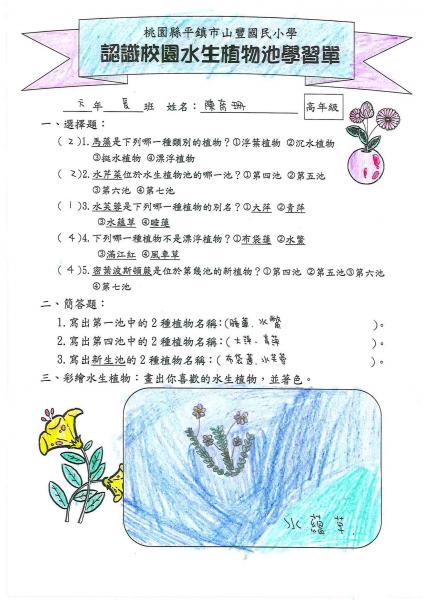 桃園縣平鎮市山豐國民小學
認識校園水生植物池學習單
六年 夏 班 姓名： 高年級
一、選擇題：
(2)1.馬藻是下列哪一種類別的植物？①浮葉植物 ②沉水植物
③挺水植物 ④漂浮植物
(2)2.水芹菜位於水生植物池的哪一池？①第四池 ②第五池
③第六池 ④第七池
(1)3.水芙蓉是下列哪一種植物的別名？①大萍 ②青萍
③水蘊草 ④睡蓮
(4)4.下列哪一種植物不是漂浮植物？①布袋蓮 ②水鱉
③滿江紅 ④風車草
(4)5.密葉波斯頓蕨是位於第幾池的新植物？①第四池 ②第五池③第六池
④第七池
二、簡答題：
1.寫出第一池中的2種植物名稱：(睡蓮、水鱉)。
2.寫出第四池中的2種植物名稱：(大萍、青萍)。
3.寫出新生池的2種植物名稱：(布袋蓮、水芙蓉)。
三、彩繪水生植物：畫出你喜歡的水生植物，並著色。